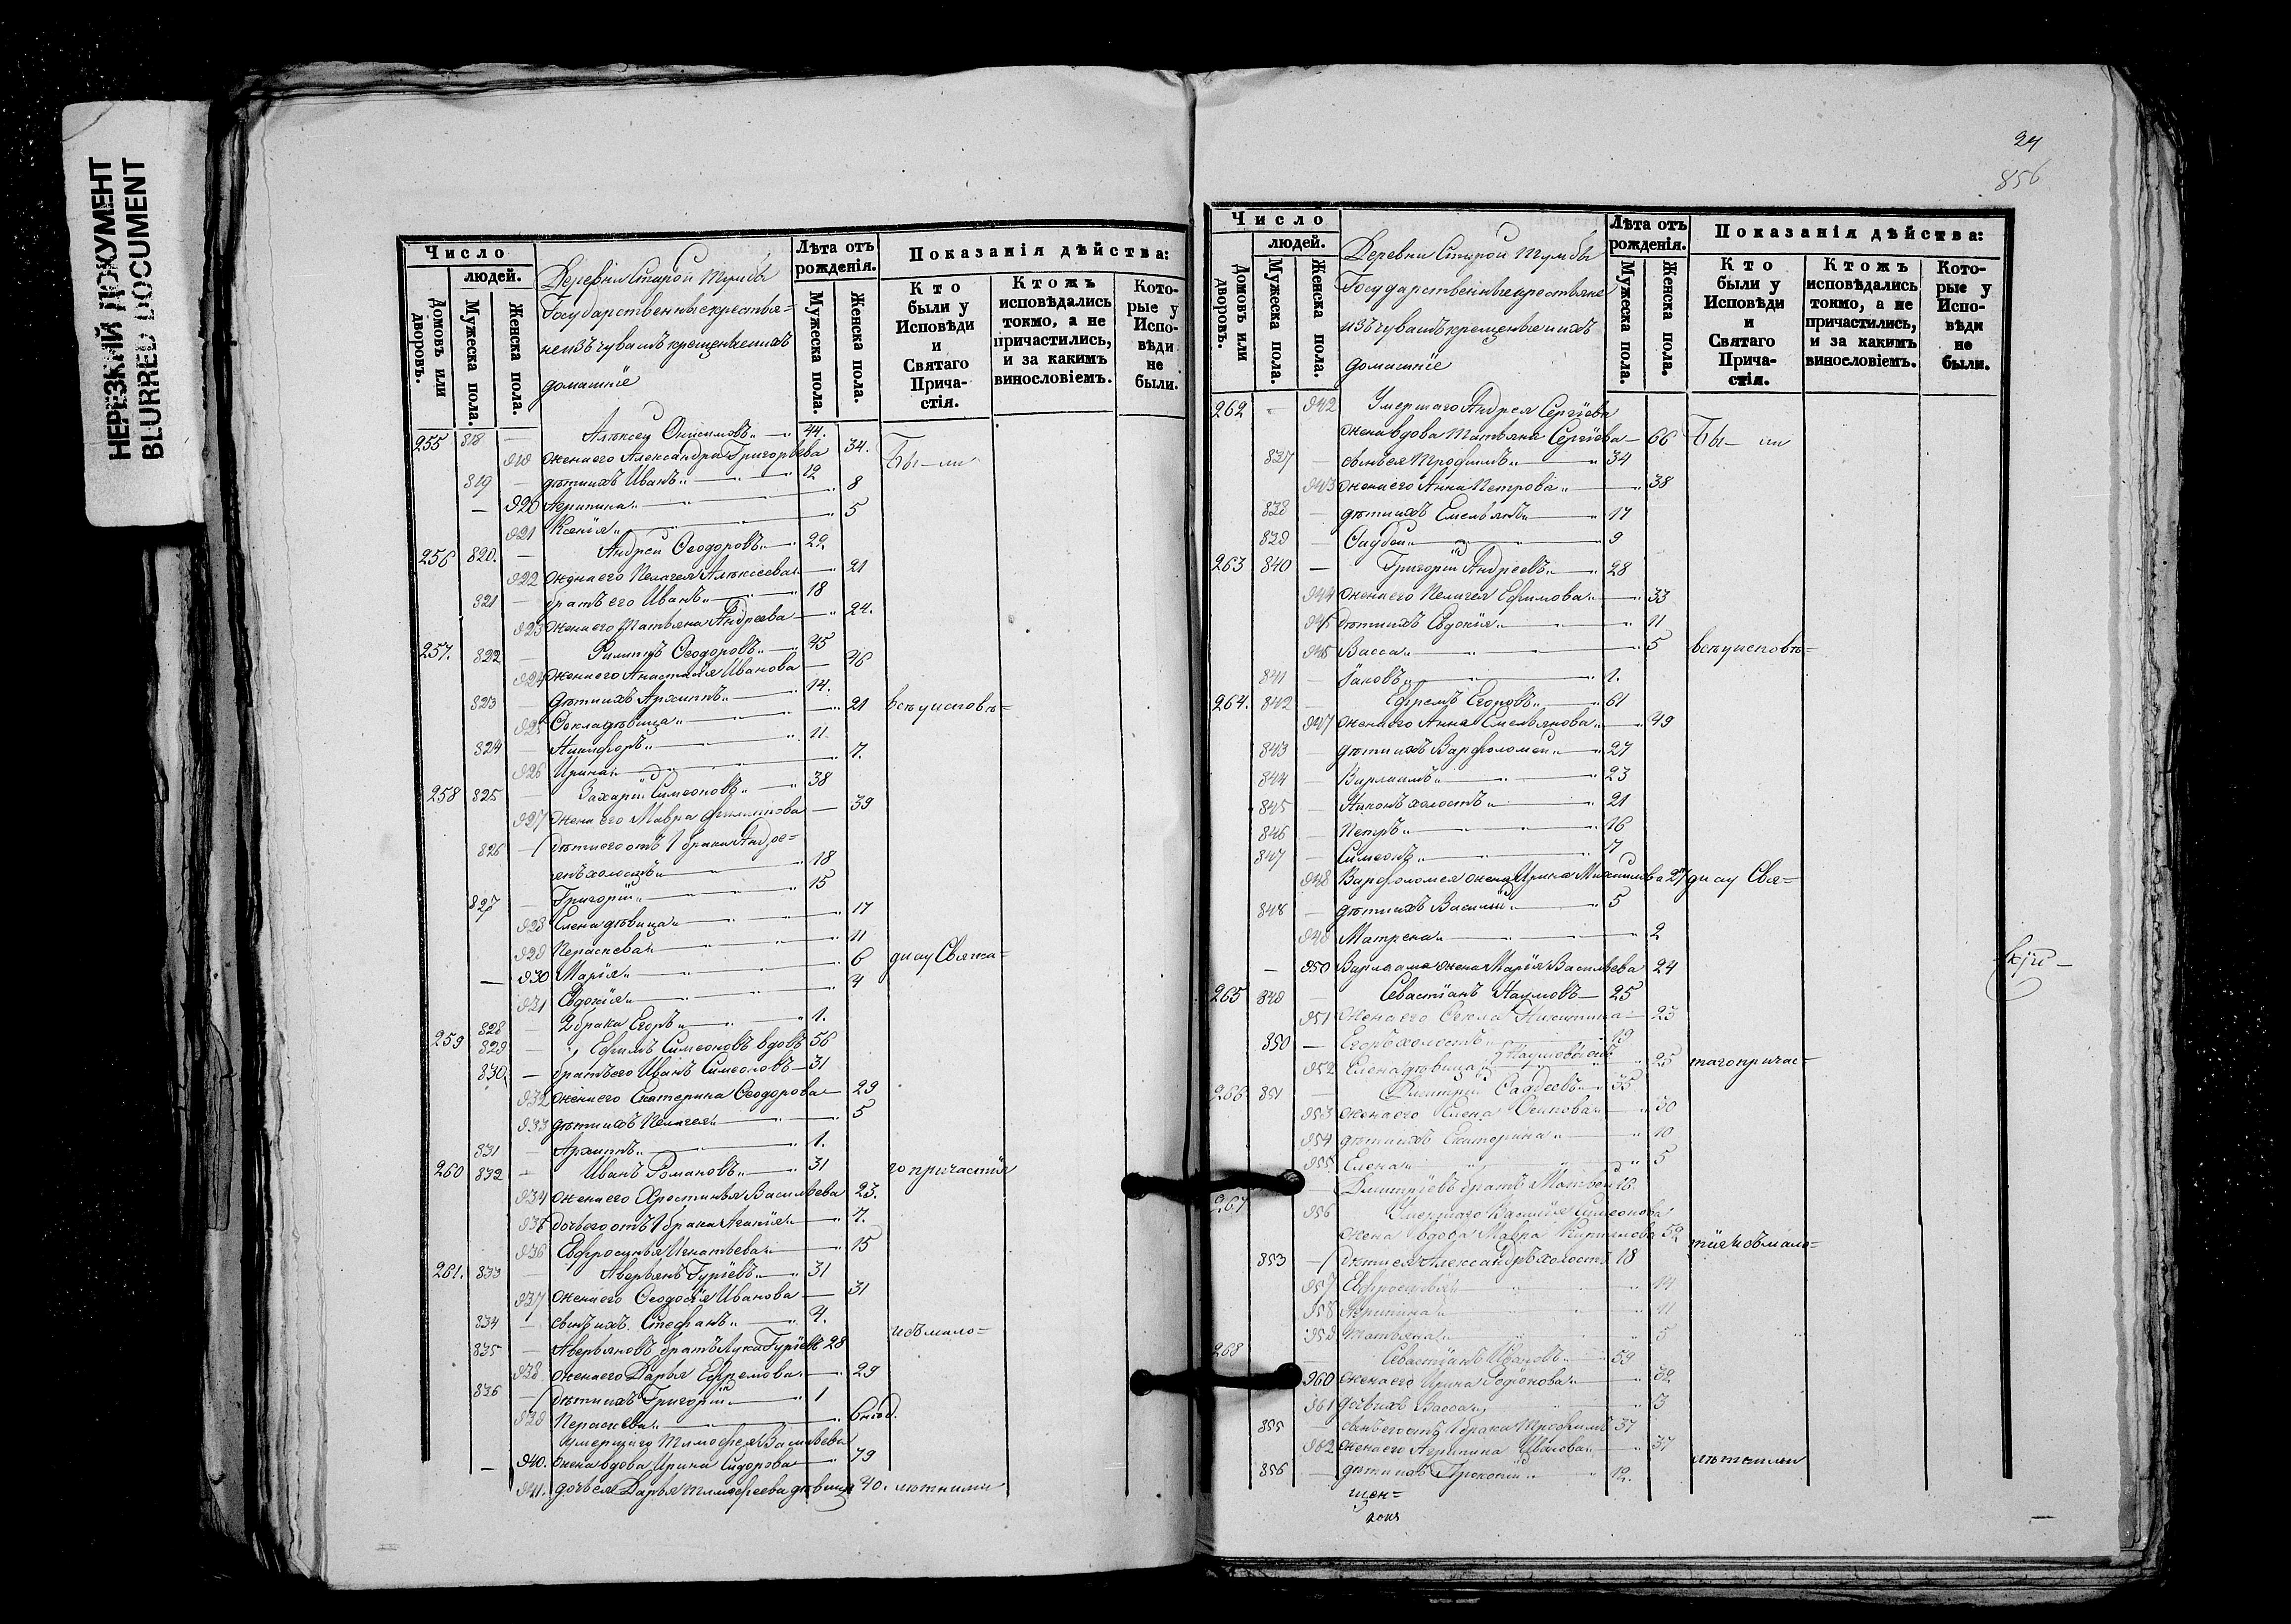 НЕРЕЗКИЙ ДОКУМЕНТ
BLURRED DOCUMENT
Число
людей.
Домовъ или дворовъ.
Мужеска пола.
Женска пола.
Деревни Старой Тумбы
Государственные крестья=
не изъ чувашъ крещеные и ихъ
домашніе
Лѣта отъ рожденія.
Мужеска пола.
Женска пола.
Показанія дѣйства:
Кто были у Исповѣди и Святаго Прича-стія.
Ктожъ исповѣдались токмо, а не причастились, и за какимъ винословіемъ.
Кото-рые у Испо-вѣди не были.
255 818 — Алексѣй Онисимовъ 44.
919 жена его Александра Григорьева 34. Бы—ли
819 — дѣти ихъ Иванъ 12
— 920 Агрипина 8
921 Ксенія 5
256 820. — Андрей Ѳеодоровъ 22
922 жена его Пелагея Алексѣева 21
821 — братъ его Иванъ 18
923 жена его Татьяна Андреева 24.
257. 822 — Филиппъ Ѳеодоровъ 45
924 жена его Анастасія Иванова 46
823 — дѣти ихъ Архиппъ 14.
925 Ѳекла дѣвица 21 всѣ у исповѣ=
824 — Никифоръ 11
926 Ирина 7.
258 825 — Захарій Симеоновъ 38
927 жена его Мавра Филиппова 39
826 — дѣти его отъ 1 брака Андре=
янъ холостъ 18
827 — Григорій 15
928 Елена дѣвица 17
929 Параскева 11
— 930 Марія 6 ди и у Свята=
931 Евдокія 4
828 — 2 брака Егоръ 1.
259 829 — Ефимъ Симеоновъ вдовъ 56
830. — братъ его Иванъ Симеоновъ 31
932 жена его Екатерина Ѳеодорова 29
933 дѣти ихъ Пелагея 5
831 — Архиппъ 1.
260 832 — Иванъ Романовъ 31 го причастія
934 жена его Христинья Васильева 23.
935 дочь его отъ 1 брака Агапія 7.
936 Евфросинья Игнатьева 15
261. 833 — Аверьянъ Гурьевъ 31
937 жена его Ѳеодосія Иванова 31
834 — сынъ ихъ Стефанъ 4.
835 — Аверьяновъ братъ Лука Гурьевъ 28 и съ мало=
938 жена его Дарья Ефремова 29
836 — дѣти ихъ Григорій 1
939 Параскева
умершаго Тимофея Васильева
— 940. жена вдова Ирина Сидорова 79
941. дочь ея Дарья Тимофеева дѣвица 40. лѣтними
24
856
Число
людей.
Домовъ или дворовъ.
Мужеска пола.
Женска пола.
Деревни Старой Тумбы
Государственные крестьяне
изъ чувашъ крещеные и ихъ
домашніе
Лѣта отъ рожденія.
Мужеска пола.
Женска пола.
Показанія дѣйства:
Кто были у Исповѣди и Святаго Прича-стія.
Ктожъ исповѣдались токмо, а не причастились, и за какимъ винословіемъ.
Кото-рые у Испо-вѣди не были.
262 — 942 Умершаго Андрея Сергіева
жена вдова Татьяна Сергіева 66 Бы—ли
837 — сынъ ея Трофимъ 34
943 жена его Анна Петрова 38
838 — дѣти ихъ Емельянъ 17
839 — Ѳаддей 9
263 840 — Григорій Андреевъ 28
944 жена его Пелагея Ефимова 33
945 дѣти ихъ Евдокія 11
946 Васса 5 всѣ у исповѣ=
841 — Іаковъ 1.
264. 842 — Ефремъ Егоровъ 61
947 жена его Анна Емельянова 49
843 дѣти ихъ Варфоломей 27
844 — Варлаамъ 23
845 — Никонъ холостъ 21
846 — Петръ 16
847 — Симеонъ 7
948 Варфоломея жена Ирина Михайлова 27 ди и у Свя=
848 — дѣти ихъ Василій 5
949 Матрена 2
— 950 Варлаама жена Марія Васильева 24
265 849 — Севастіанъ Наумовъ 25
951 жена его Ѳекла Никитина 23
850 — Егоръ холостъ 19
952 Елена дѣвица Наумовы 25 таго причас=
266 851 — Димитрій Ѳаддеевъ 35
953 жена его Елена Осипова 30
954 дѣти ихъ Екатерина 10
955 Елена 5
— Димитріевъ братъ Матвей 16.
267 956 Умершаго Василія Симеонова
жена вдова Мавра Кирилова 52 тія и съ мало=
853 — дѣти ея Александръ холостъ 18
957 Евфросинія 14
958 Агрипина 11
959 Татьяна 5
268 — Севастіанъ Ивановъ 59
960 жена его Ирина Родіонова 32
961 дочь ихъ Васса 3
855 — сынъ его отъ 1 брака Трофимъ 37
962 жена его Агрипина Иванова 37
856 — дѣти ихъ Прокопій 12. лѣтними